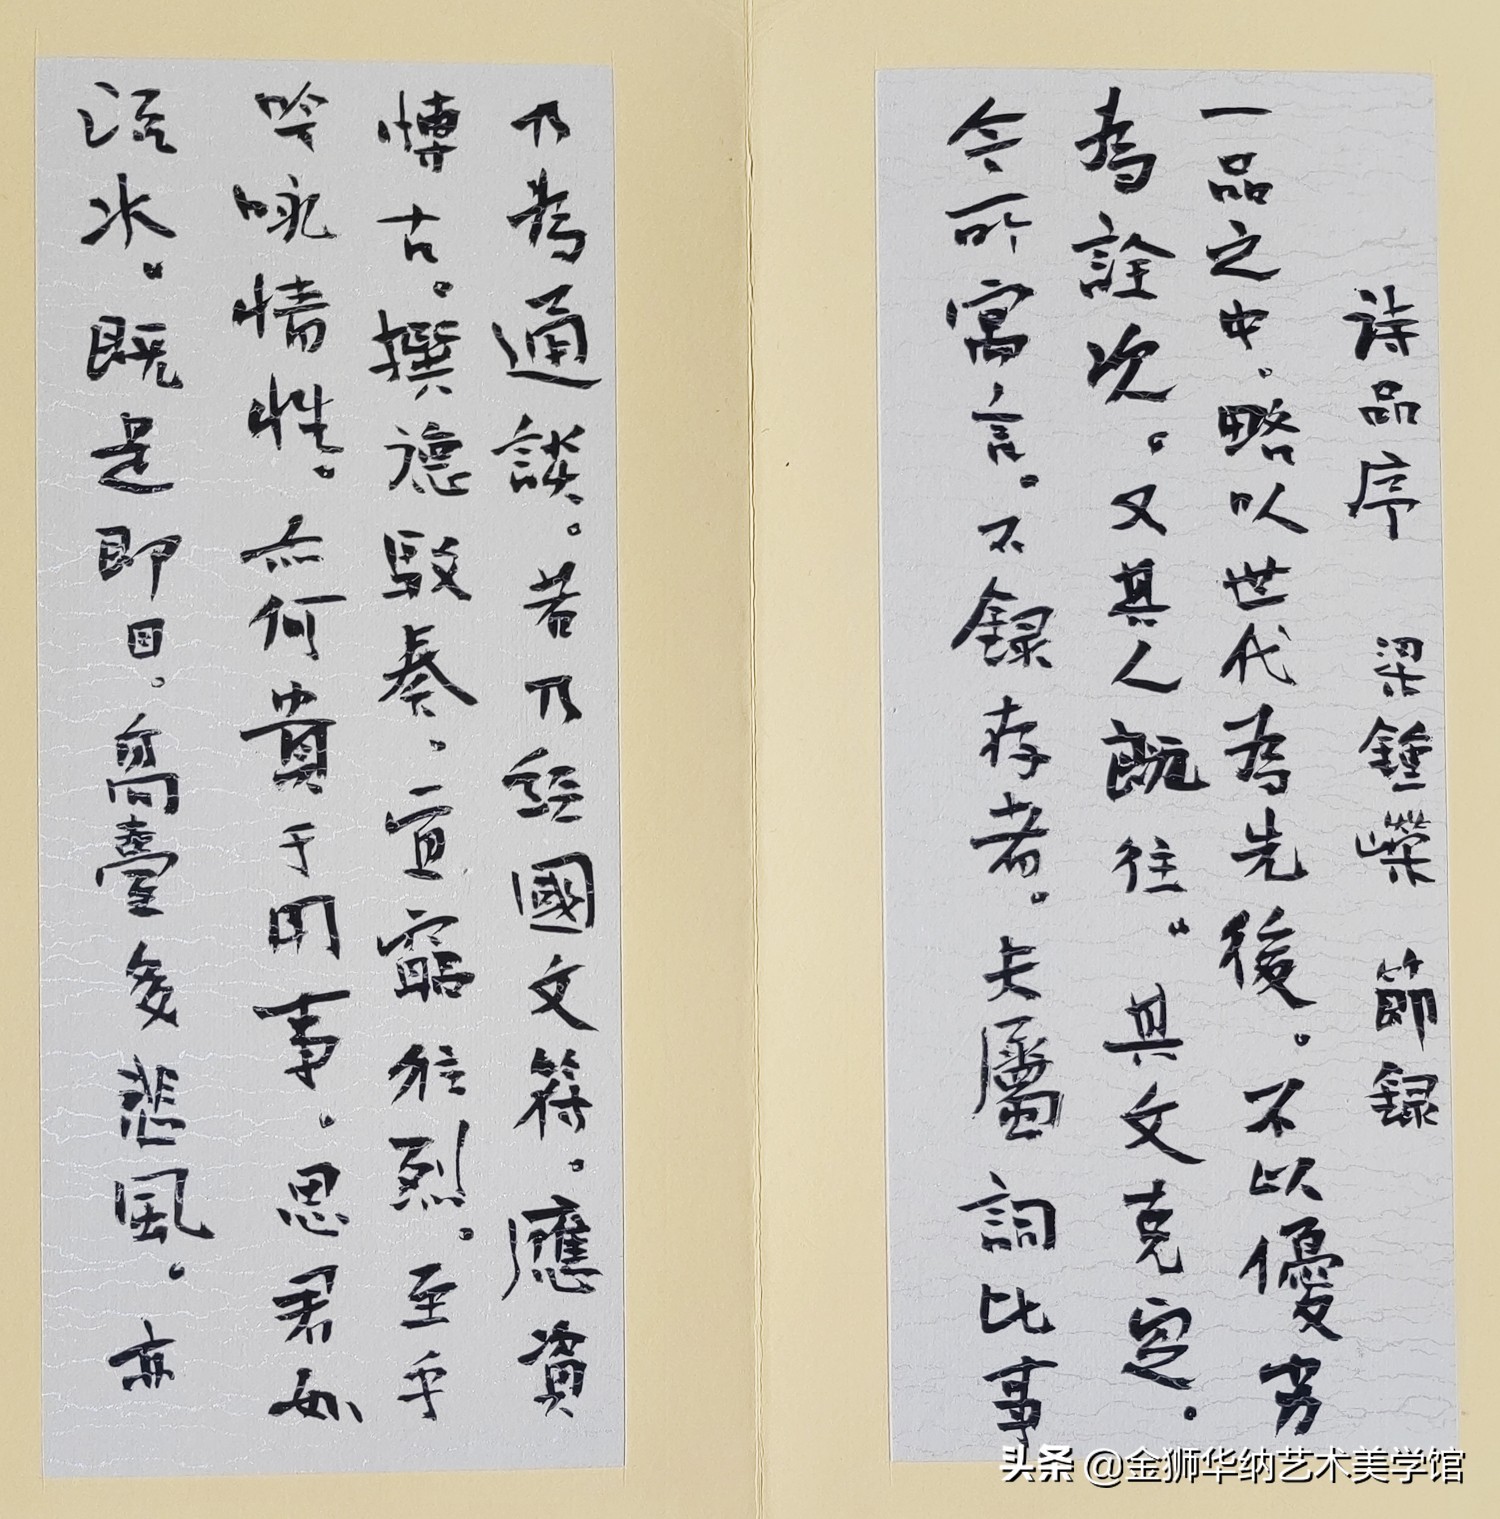 詩品序 梁鍾嶸 節録
一品之中。略以世代為先後。不以優劣
為詮次。又其人既往。其文克定。
今所寓言。不錄存者。夫屬詞比事
乃為通談。若乃經國文符。應資
博古。撰德駁奏。宜窮往烈。至乎
吟咏情性。亦何貴于用事。思君如
流水。既是即目。高臺多悲風。亦
头条 @金狮华纳艺术美学馆